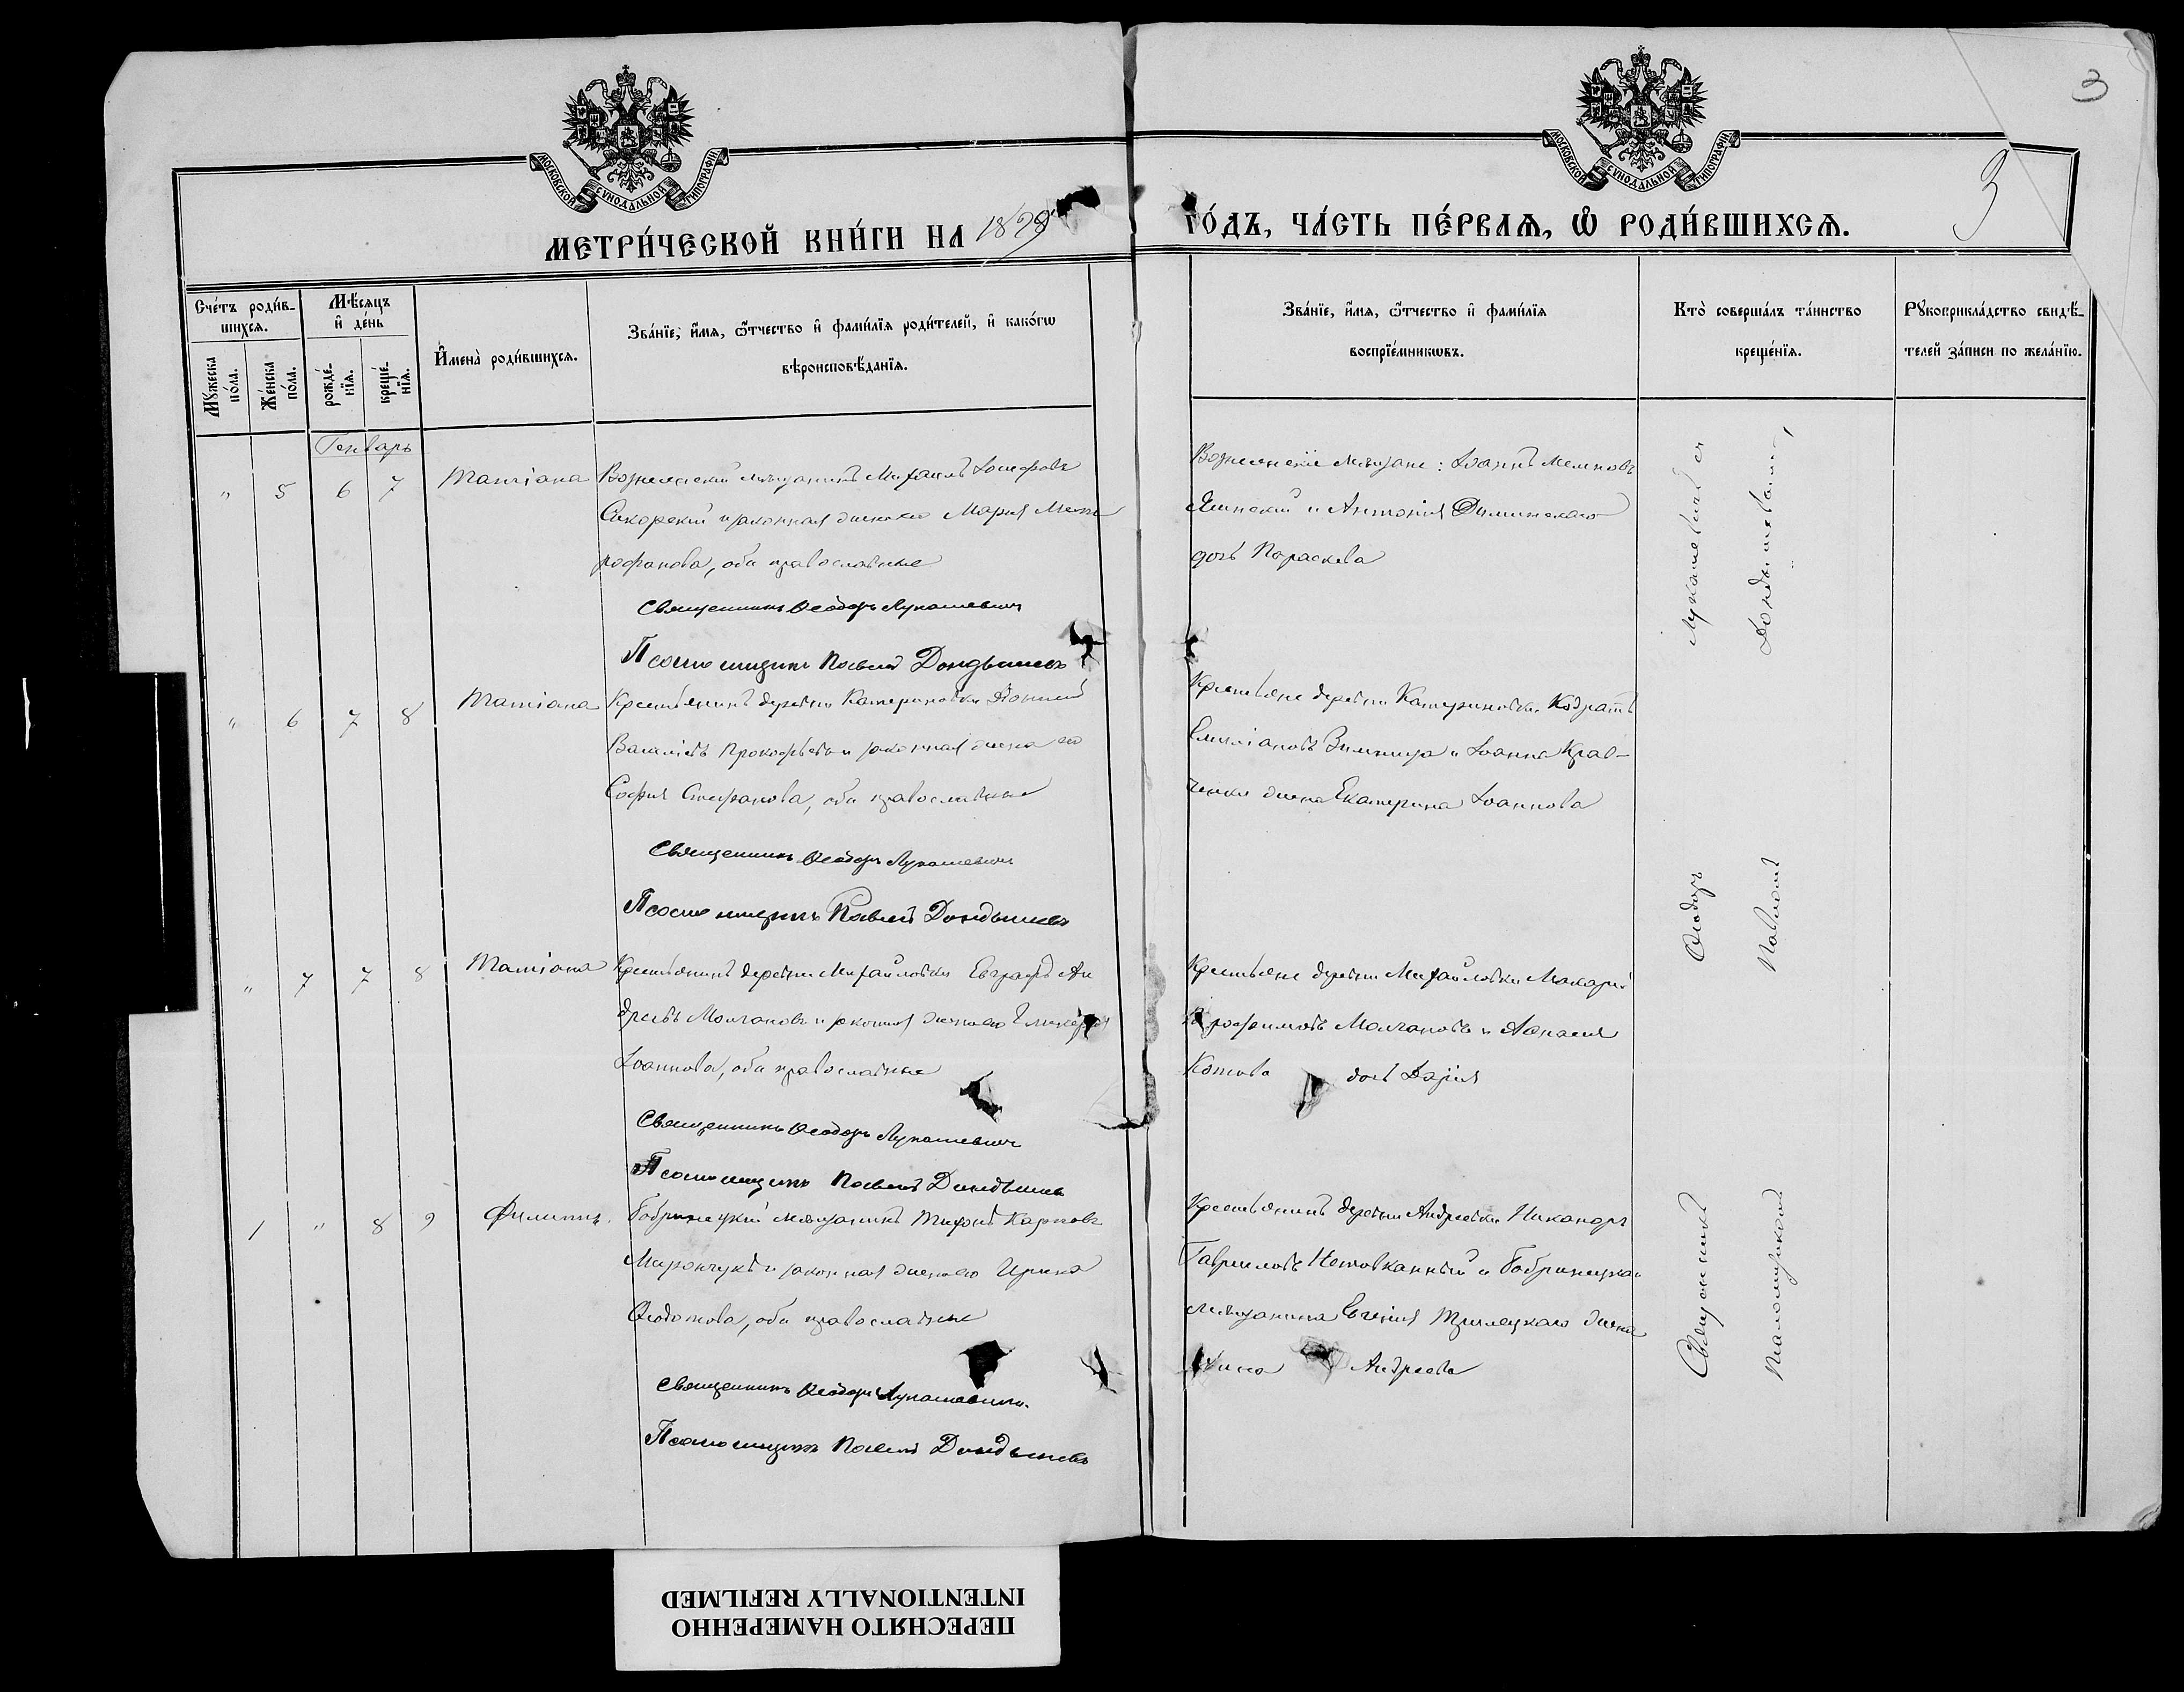 3
МОСКОВСКОЙ СѴНОДАЛЬНОЙ ТИПОГРАФІИ.
МОСКОВСКОЙ СѴНОДАЛЬНОЙ ТИПОГРАФІИ.
3
МЕТРИ́ЧЕСКОЙ КНИ́ГИ НА 1879 ГО́ДЪ, ЧА́СТЬ ПЕ́РВАѦ, Ѡ҆ РОДИ́ВШИХСѦ.
Сче́тъ роди́в-
шихсѧ.
Мꙋ́жеска по́ла.
Же́нска по́ла.
Мѣ́сѧцъ
и҆ де́нь
рожде́-
нїѧ.
креще́-
нїѧ.
И҆мена̀ роди́вшихсѧ.
Зва́нїе, и҆́мѧ, ѻ҆́тчество и҆ фами́лїѧ роди́телей, и҆ како́гѡ
вѣроисповѣ́данїѧ.
Зва́нїе, и҆́мѧ, ѻ҆́тчество и҆ фами́лїѧ
воспрїе́мникѡвъ.
Кто̀ соверша́лъ та́инство
креще́нїѧ.
Рꙋкоприкла́дство свидѣ́-
телей за́писи по жела́нїю.
Генварь
" 5 6 7 Татіана
Вознесенскій мѣщанинъ Михаилъ Іосифовъ
Сикорскій и законная жена его Марія Мит-
рофанова, оба православные
Священникъ Ѳеодоръ Лукашевичъ
Псаломщикъ Павелъ
Вознесенскіе мѣщане: Іоаннъ
и Антонія
дочь Параскева
" 6 7 8 Татіана
Крестьянинъ деревни Катериновки
Василіевъ Прокофьевъ и законная жена его
Софія Стефанова, оба православные
Священникъ Ѳеодоръ Лукашевичъ
Псаломщикъ Павелъ
Крестьяне деревни Катериновки Кодратъ
Емиліановъ и Іоанна Крав-
ченки жена Екатерина Іоаннова
" 7 7 8 Татіана
Крестьянинъ деревни Михайловки Евграфъ Ан
дреевъ Молчановъ и законная жена его
Іоаннова, оба православные
Священникъ Ѳеодоръ Лукашевичъ
Псаломщикъ Павелъ
Крестьяне деревни Михайловки Макарій
Трофимовъ Молчановъ и Аѳанасія
Котова дочь Дарія
1 " 8 9 Филиппъ.
Бобринецкій мѣщанинъ Тифонъ Карповъ
Мирончукъ и законная жена его Ирина
Ѳеодотова, оба православные
Священникъ Ѳеодоръ Лукашевичъ.
Псаломщикъ Павелъ
Крестьянинъ деревни Андреевки Никаноръ
Гавриловъ и Бобринецкаго
мѣщанина Евгенія жена
Андреева
Священникъ Ѳеодоръ Лукашевичъ съ
Псаломщикомъ Павломъ
ПЕРЕСНЯТО НАМЕРЕННО
INTENTIONALLY REFILMED